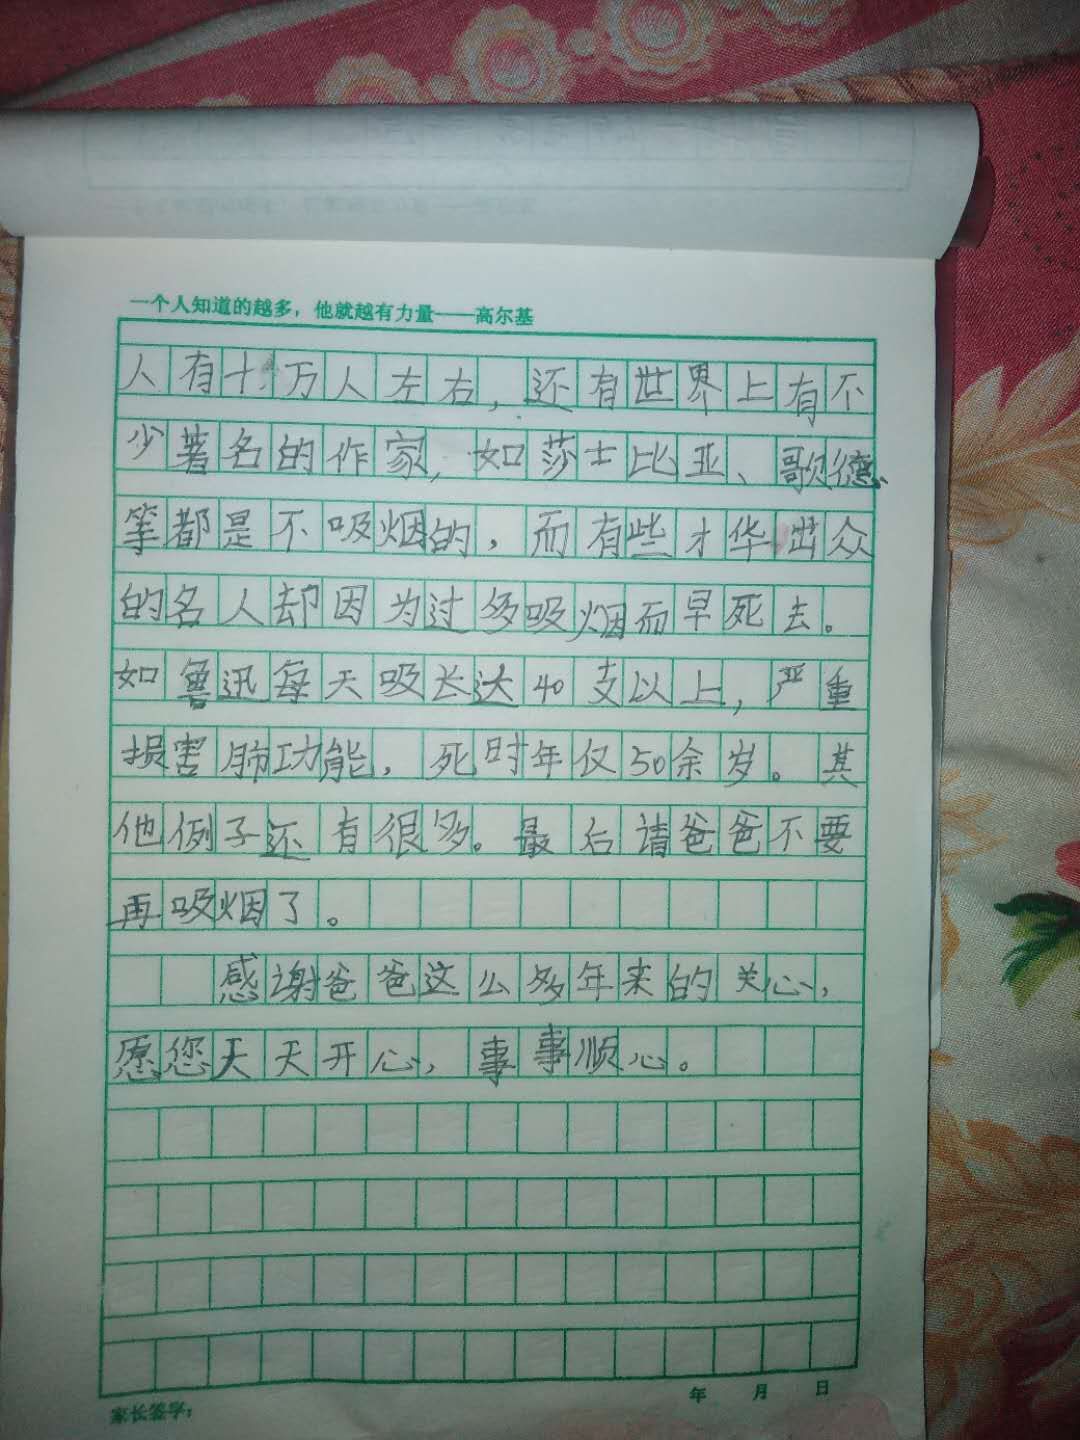 一个人知道的越多，他就越有力量——高尔基
人有十万人左右，还有世界上有不
少著名的作家，如莎士比亚、歌德
等都是不吸烟的，而有些才华出众
的名人却因为过多吸烟而早死去。
如鲁迅每天吸长达40支以上，严重
损害肺功能，死时年仅50余岁。其
他例子还有很多。最后请爸爸不要
再吸烟了。
感谢爸爸这么多年来的关心，
愿您天天开心，事事顺心。
年 月 日
家长签字：